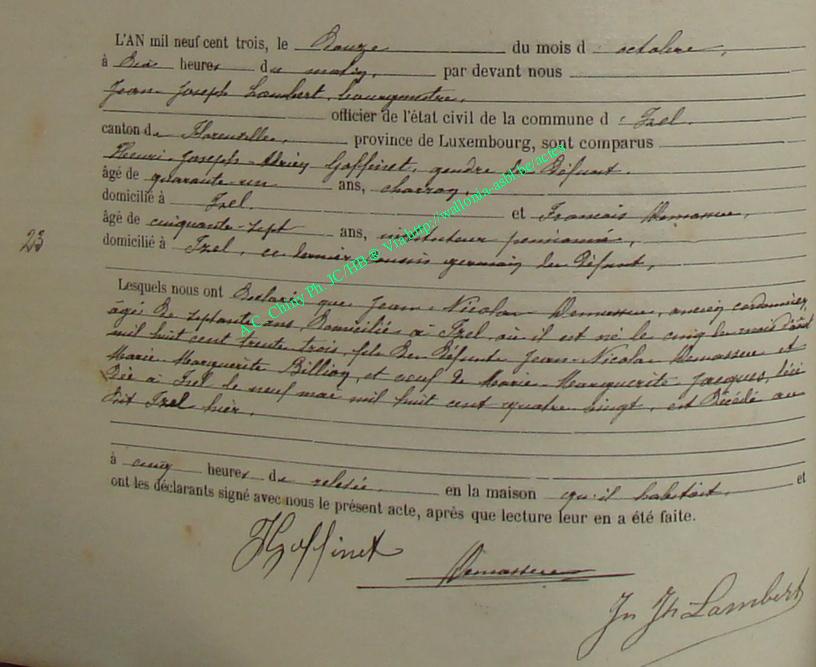 L'AN mil neuf cent trois, le Douze du mois d octobre,
à Dix heures du matin, par devant nous
Jean Joseph Lambert, bourgmestre,
officier de l'état civil de la commune d e Izel.
canton de Florenville, province de Luxembourg, sont comparus
Henri-Joseph-Adrien Goffinet, gendre du Défunt.
âgé de quarante-un ans, charron,
domicilié à Izel. et François Demasure,
âgé de cinquante-sept ans, instituteur pensionné,
23
domicilié à Izel, ce dernier cousin germain du Défunt,
Lesquels nous ont Déclaré que Jean-Nicolas Demasure, ancien cordonnier,
âgé de septante ans, Domicilié à Izel, où il est né le cinq du mois d'août
mil huit cent trente trois, fils de Défunts Jean-Nicolas Demasure et
Marie-Marguerite Billion, et veuf de Marie-Marguerite Jacques, décé
dée à Izel le neuf mai mil huit cent quatre vingt, est Décédé au
dit Izel hier,
à cinq heures du relevée en la maison qu'il habitait, et
ont les déclarants signé avec nous le présent acte, après que lecture leur en a été faite.
HGoffinet
Demasure
Jn Jh Lambert
A.C. Chiny Ph. JC/HB ® Via http://wallonia-asbl.be/actes